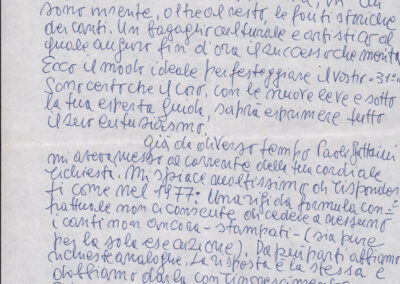 sono inerente, oltre al resto, le fonti storiche
dei canti. Un bagaglio culturale e artistico al
quale auguro fin d'ora il successo che merita
Ecco il modo ideale per festeggiare il vostro "31°"
Sono certo che il coro, con le nuove leve e sotto
la tua esperta guida, saprà esprimere tutto
il suo entusiasmo.
Già da diverso tempo Paolo Bettaini
mi aveva messo al corrente della tua cordiale
richiesta. Mi spiace moltissimo di risponder
ti come nel 1977: Una rigida formula con=
trattuale non ci consente di cedere a nessuno
i canti non ancora - stampati - (sia pure
per la sola esecuzione). Da più parti abbiamo
richieste analoghe. La risposta è la stessa e
dobbiamo darla con rincrescimento